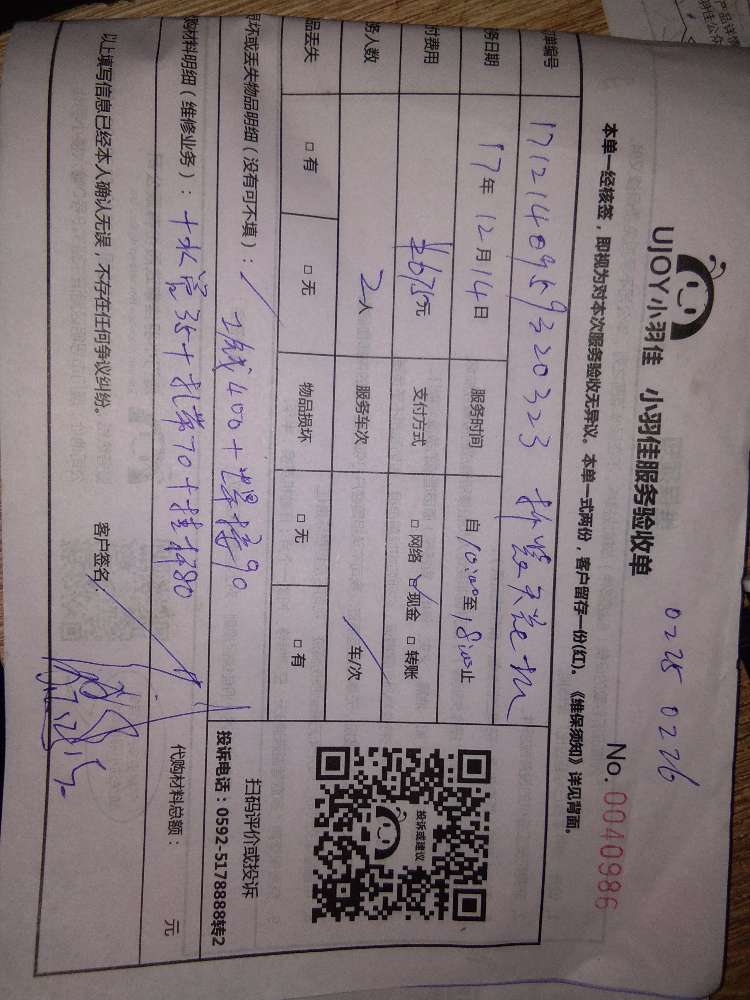 0225 0226
UJOY小羽佳 小羽佳服务验收单
No. 0040986
本单一经核签，即视为对本次服务验收无异议。本单一式两份，客户留存一份(红)。《维保须知》详见背面。
单编号 171214095932 0323
务日期 17年 12月 14日 服务时间 自 10:00 至 18:00 止
付费用 675元 支付方式 □ 网络 ☑ 现金 □ 转账
务人数 2人 服务车次 / 车/次
品丢失 □ 有 □ 无 物品损坏 □ 无 □ 有
损坏或丢失物品明细（没有可不填）：/
购材料明细（维修业务）： 400+焊接90
+水 35+扎带70+挂 80
代购材料总额： 元
以上填写信息已经本人确认无误，不存在任何争议纠纷。 客户签名:
投诉或建议
扫码评价或投诉
投诉电话：0592-5178888转2